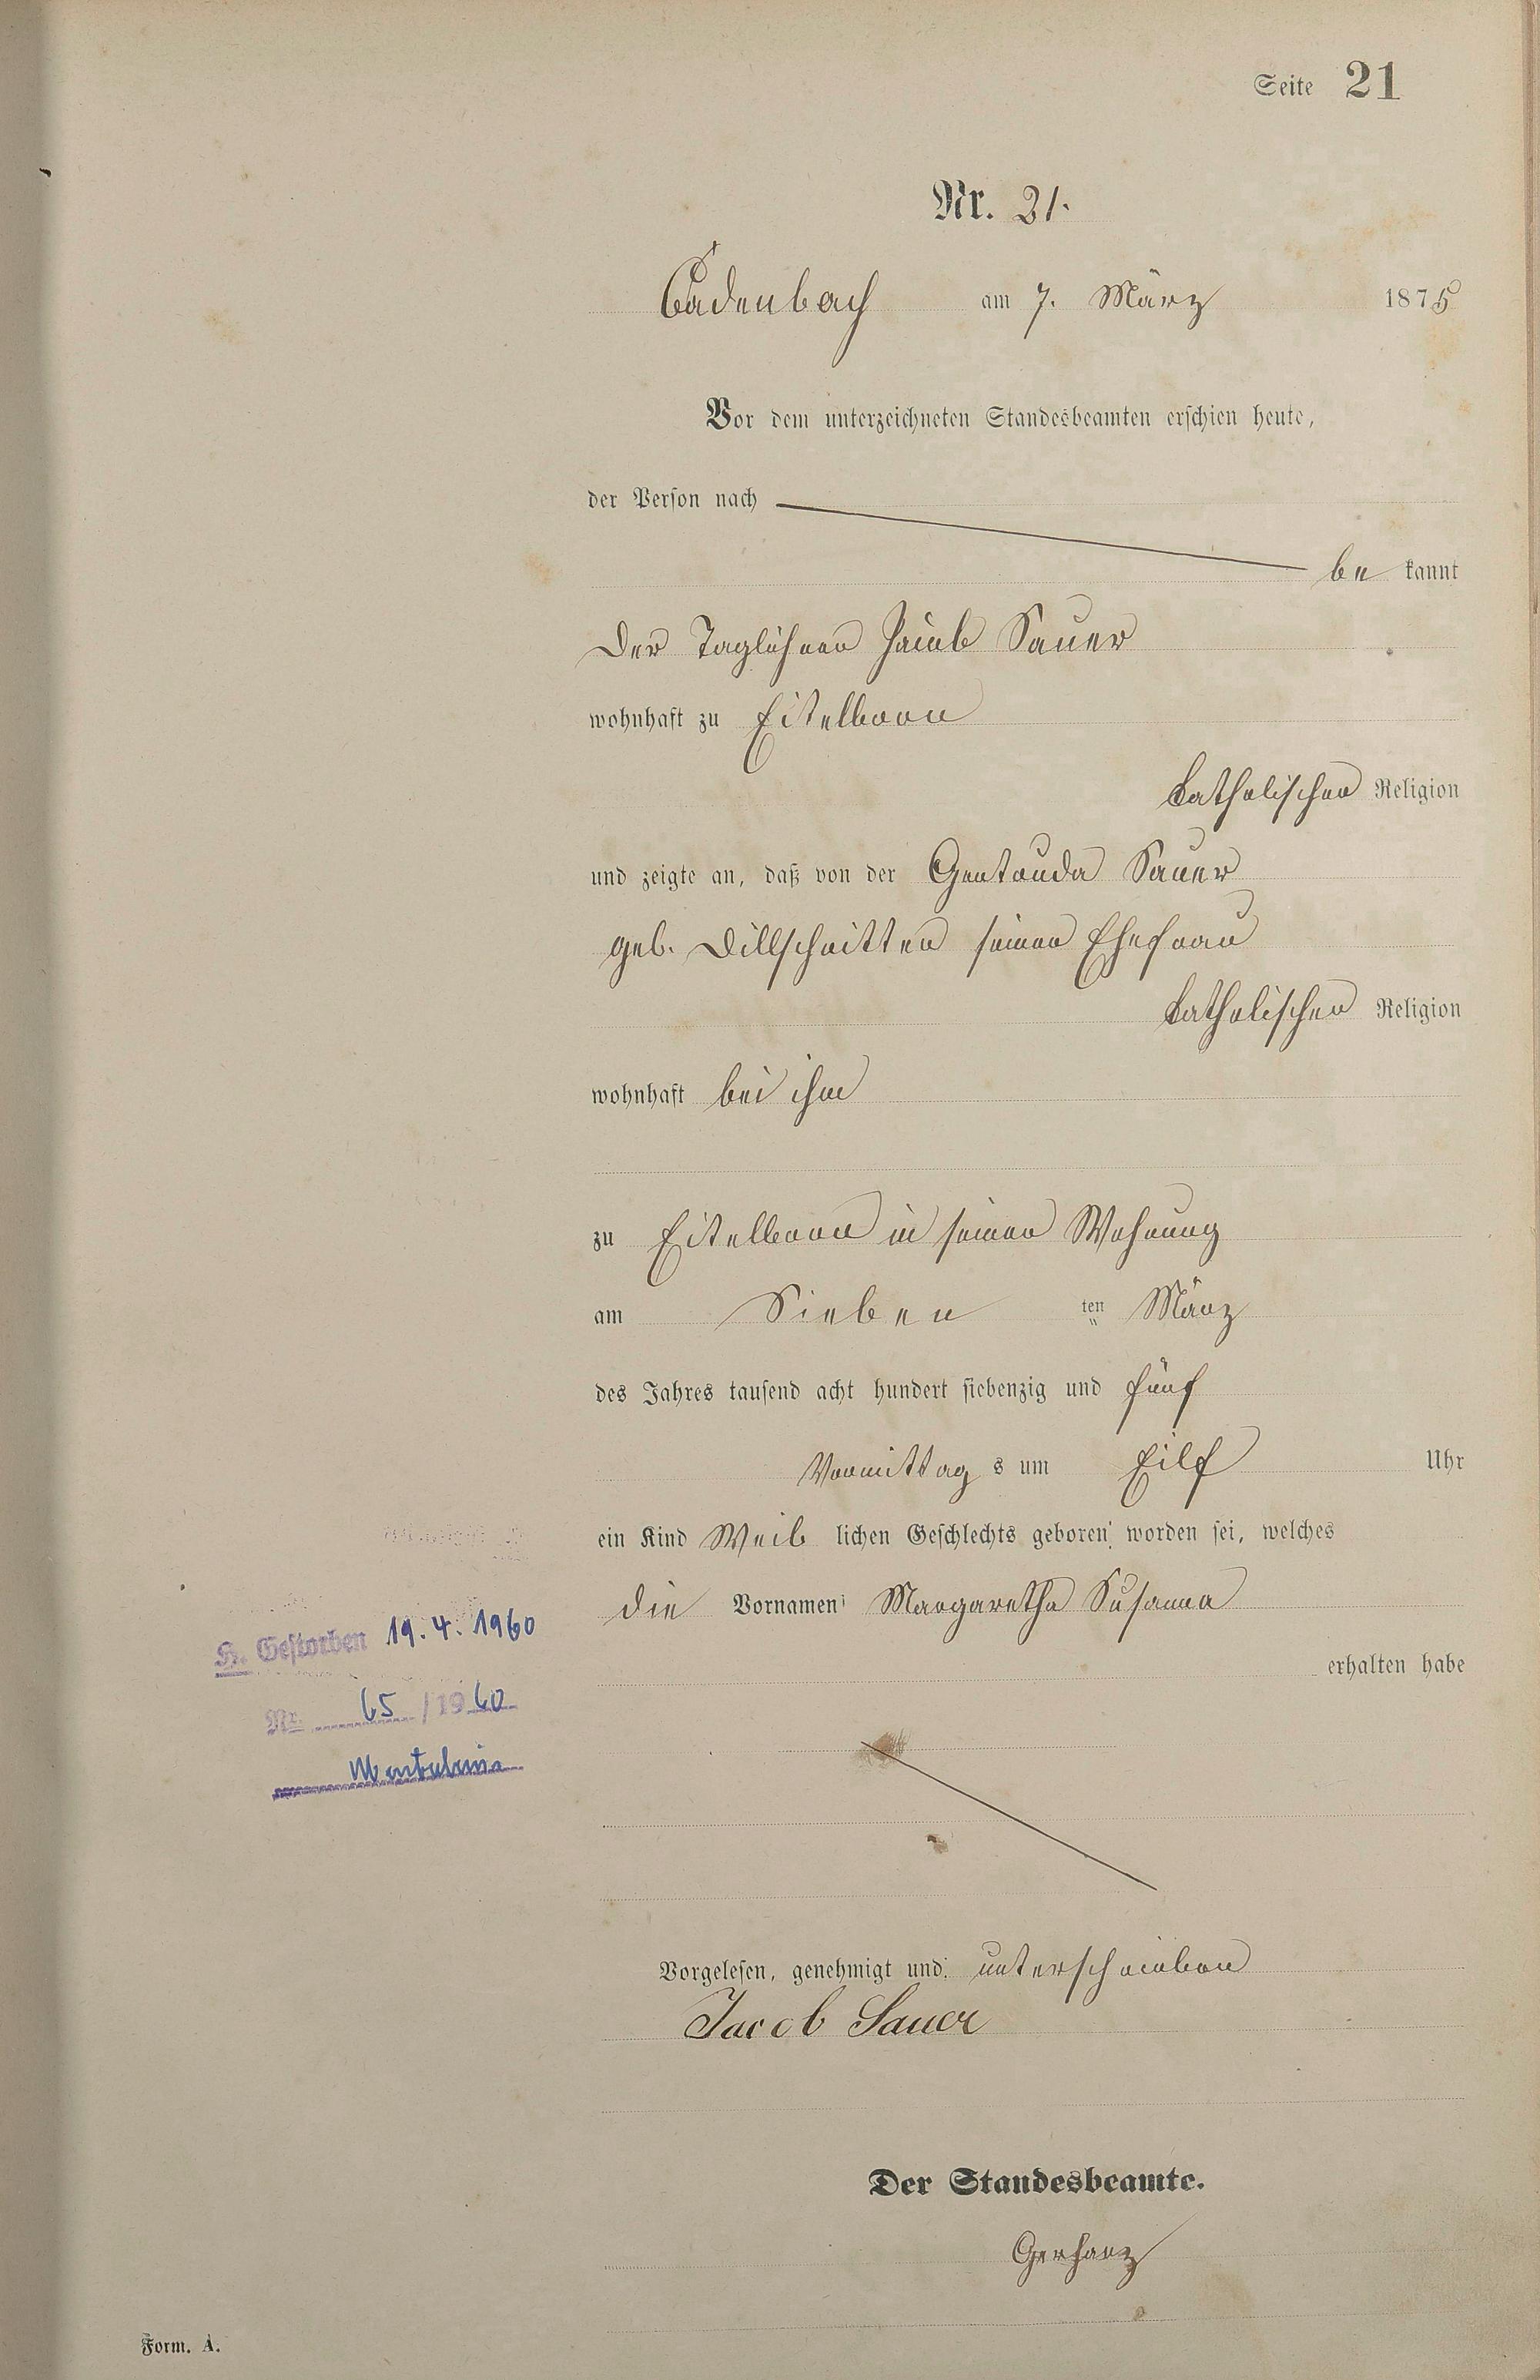 Seite 21
Nr. 21.
Cadenbach am 7. März 1875
Vor dem unterzeichneten Standesbeamten erschien heute,
der Person nach
be kannt
Der Taglöhner Jacob Sauer
wohnhaft zu Eitelborn
katholischer Religion
und zeigte an, daß von der Gertruda Sauer
geb. Dillschnitter seiner Ehefrau
katholischer Religion
wohnhaft bei ihm
zu Eitelborn in seiner Wohnung
am Sieben ten März
des Jahres tausend acht hundert siebenzig und fünf
Vormittag s um Eilf Uhr
ein Kind Weib lichen Geschlechts geboren worden sei, welches
die Vornamen Margaretha Susanna
erhalten habe
H. Gestorben 19.4.1960
Nr. 65 / 1960
Montabaur
Vorgelesen, genehmigt und unterschrieben
Jacob Sauer
Der Standesbeamte.
Gerharz
Form. A.